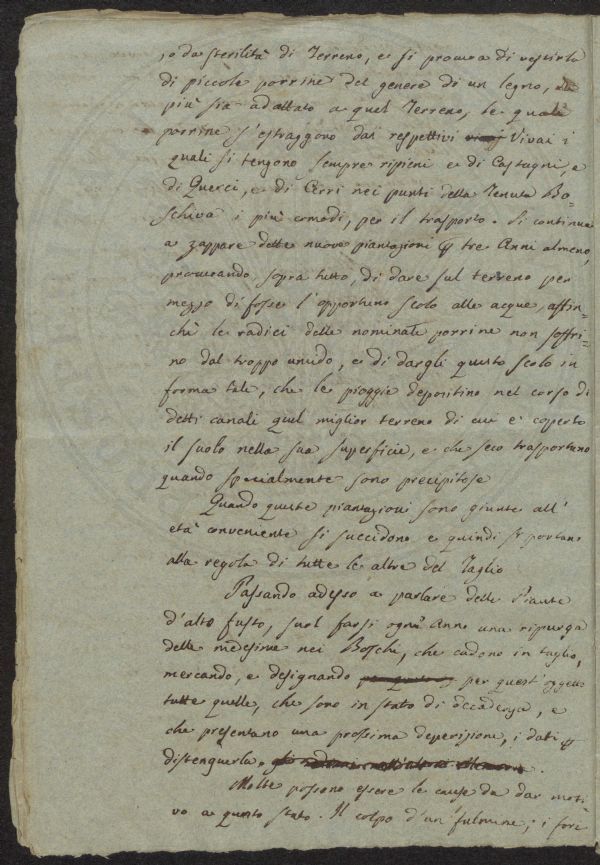 , o da sterilità di Terreno, e si procura di vestirlo
di piccole porrine del genere di un legno, che
più sia adattato a quel Terreno, le quali
porrine s'estraggono dai respettivi Vivai i
quali si tengono sempre ripieni e di Castagni, e
di Querci, e di Cerri nei punti della Tenuta Bo-
schiva i più comodi, per il trasporto. Si continua
a zappare dette nuove piantazioni p tre Anni almeno,
procurando, sopra tutto, di dare sul terreno per
mezzo di fosse l'opportuno scolo alle acque, affin-
chè le radici delle nominate porrine non soffri-
no dal troppo umido, e di dargli questo scolo in
forma tale, che le pioggie depositino nel corso di
detti canali quel miglior terreno di cui è coperto
il suolo nella sua superficie, e che seco trasportano
quando specialmente sono precipitose
Quando queste piantazioni sono giunte all'
età conveniente si succidono e quindi si portano
alla regola di tutte le altre del Taglio
Passando adesso a parlare delle Piante
d'alto fusto, suol farsi ogni Anno una ripurga
delle medesime nei Boschi, che cadono in taglio,
mercando, e designando per quest'oggetto
tutte quelle, che sono in stato di decadenza, e
che presentano una prossima deperizione, i dati p
distinguerla.
Molte possono essere le cause da dar moti
vo a questo stato. Il colpo d'un fulmine; i fori